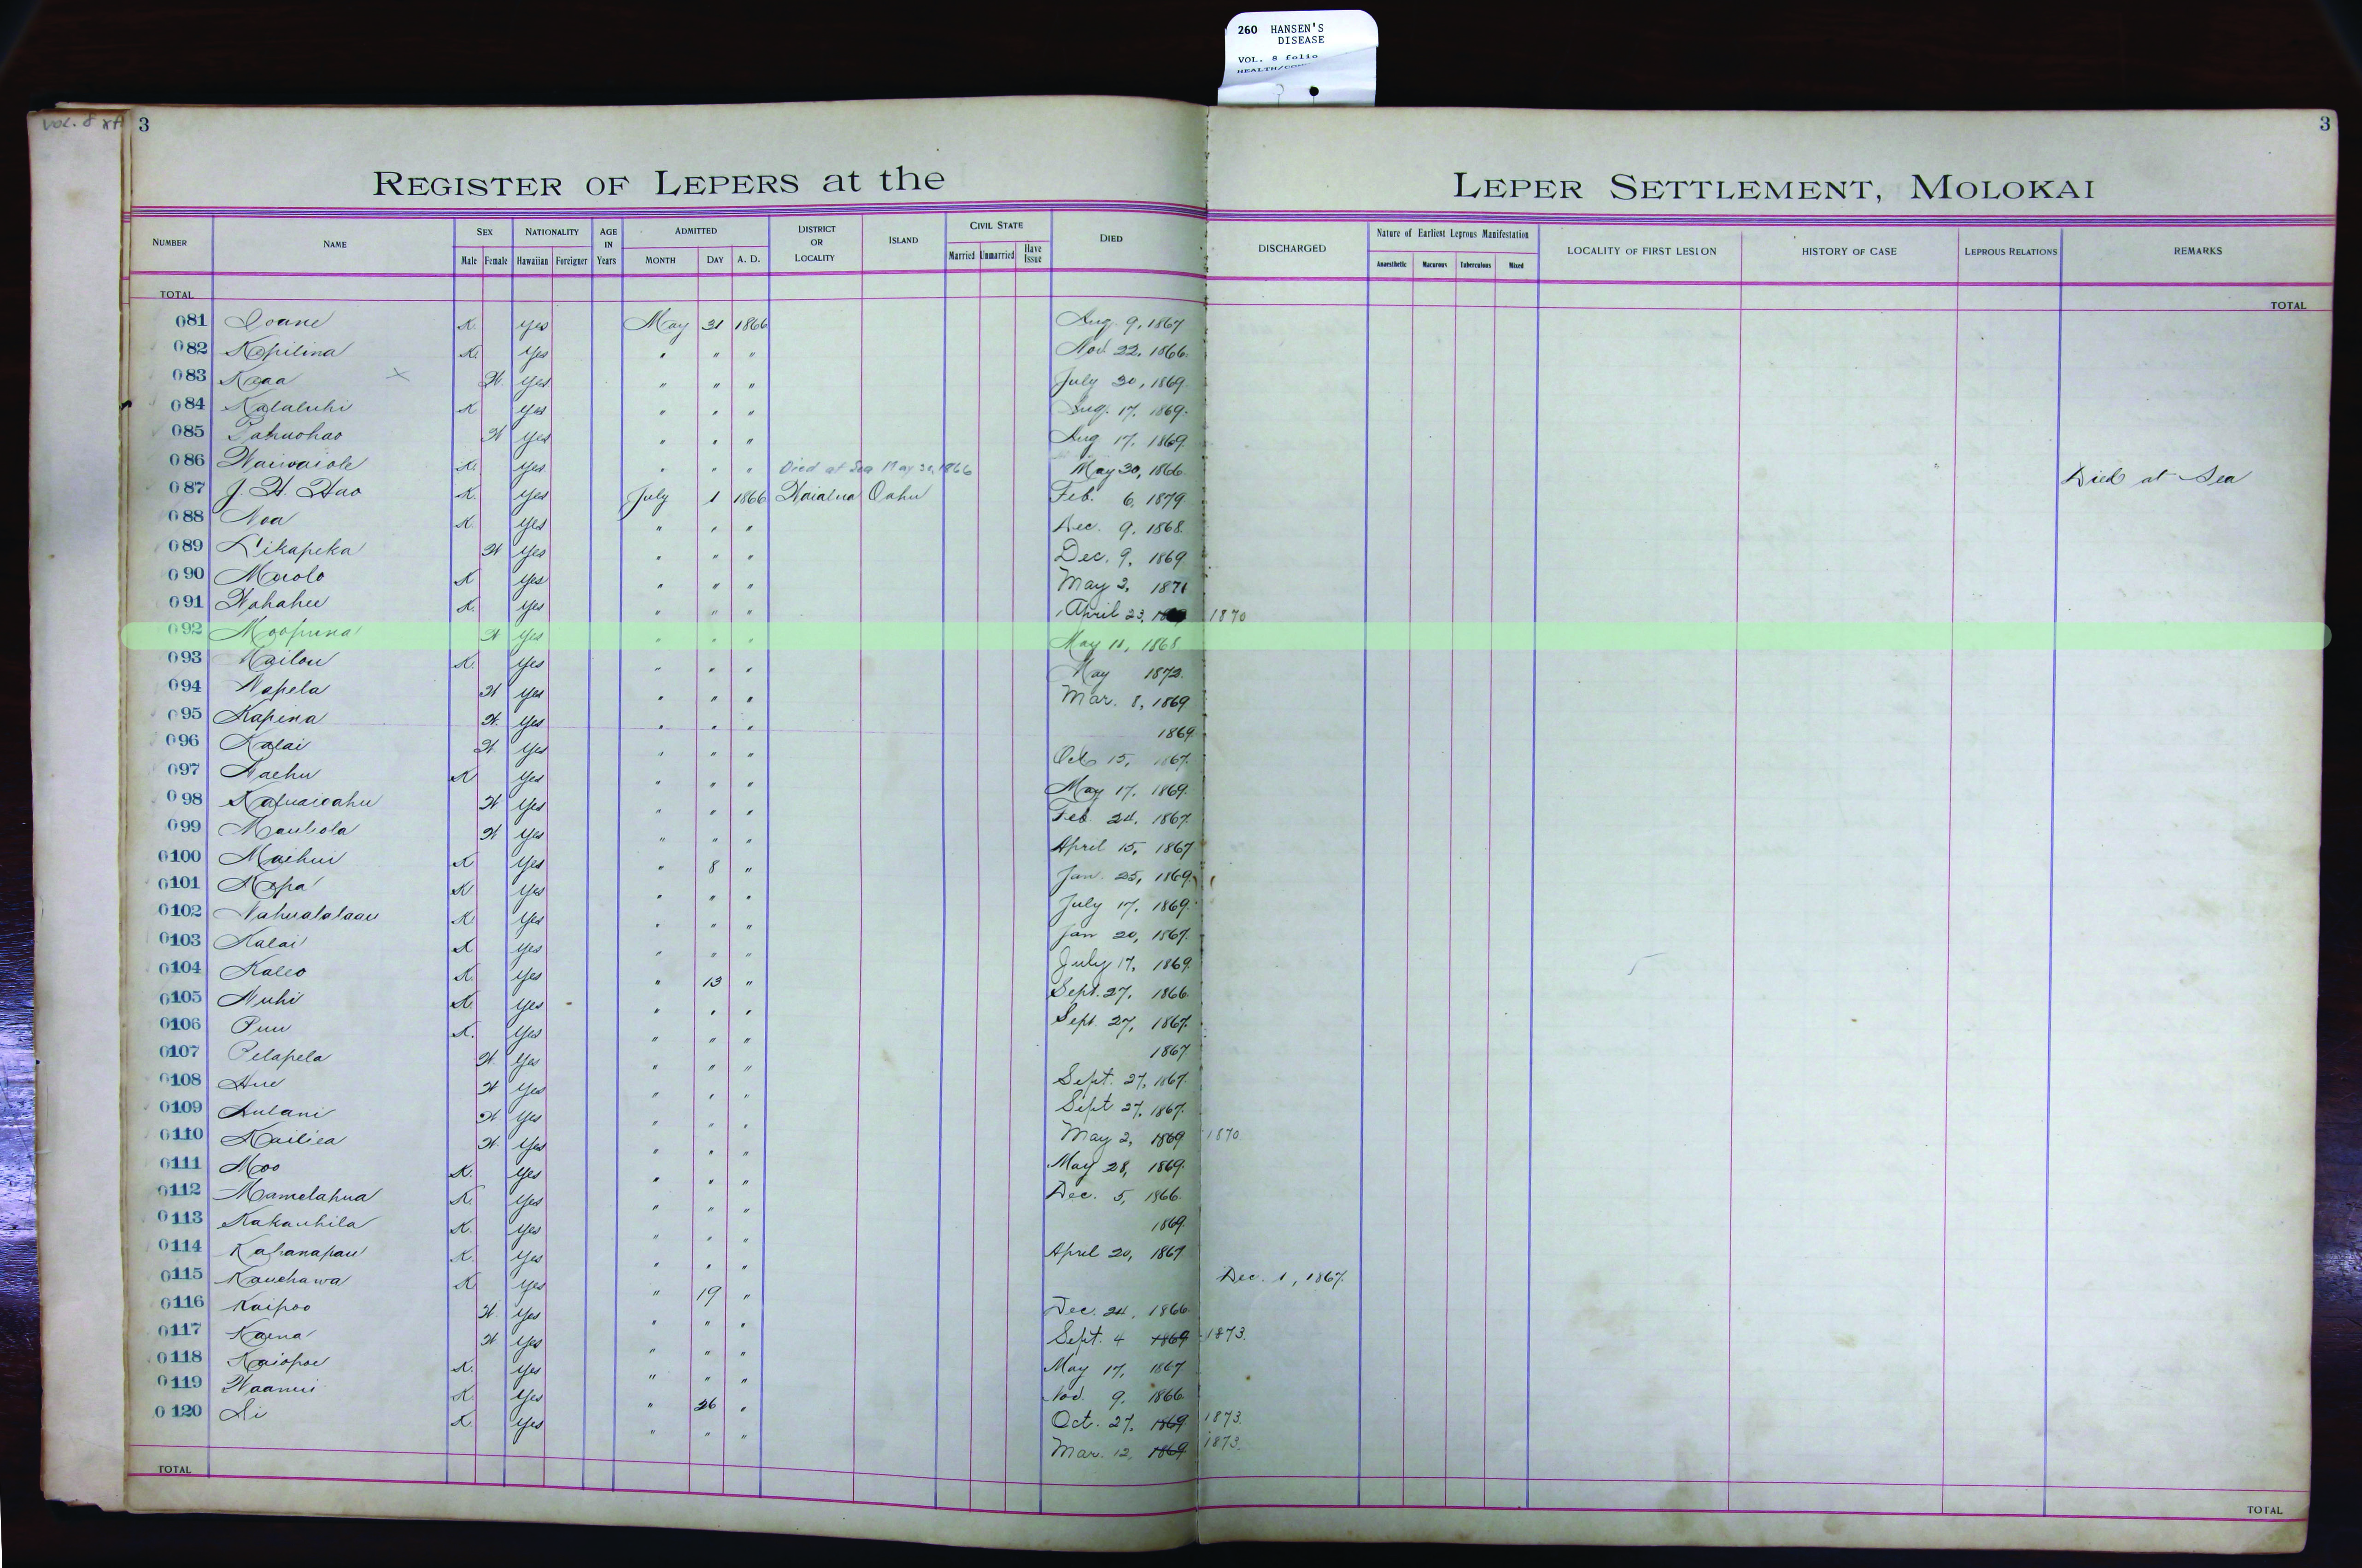 260 HANSEN'S
DISEASE
VOL. 8 folio
VOL. 8
3
3
REGISTER OF LEPERS at the LEPER SETTLEMENT, MOLOKAI
NUMBER NAME SEX NATIONALITY AGE IN Years ADMITTED DISTRICT OR LOCALITY ISLAND CIVIL STATE DIED DISCHARGED Nature of Earliest Leprous Manifestation LOCALITY OF FIRST LESION HISTORY OF CASE LEPROUS RELATIONS REMARKS
Male Female Hawaiian Foreigner MONTH DAY A. D. Married Unmarried Have Issue Anaesthetic Macurous Tuberculous Mixed
TOTAL TOTAL
081 Ioane K. Yes May 31 1866 Aug. 9, 1867
082 Kopilina K. Yes " " " Nov. 22, 1866.
083 Kaaa X W. Yes " " " July 30, 1869.
084 Kalaluhi K Yes " " " Aug. 17, 1869.
085 Pahuohao W Yes " " " Aug 17, 1869.
086 Waiwaiole K. Yes " " " Died at Sea May 30, 1866 May 30, 1866. Died at Sea
087 J. H. Hao K. Yes July 1 1866 Waialua Oahu Feb. 6, 1879
088 Noa K. Yes " " " Dec. 9, 1868.
089 Likapeka W Yes " " " Dec. 9, 1869
090 Maolo K Yes " " " May 2, 1871
091 Wahahee K. Yes " " " April 23, 1870
092 Moopuna W Yes " " " May 11, 1868.
093 Kailou K. Yes " " " May 1872.
094 Napela W Yes " " " Mar. 8, 1869
095 Kapina W. Yes " " " 1869.
096 Kalai W Yes " " " Oct 15, 1867.
097 Naehu K Yes " " " May 17, 1869.
098 Kapuaioahu W Yes " " " Feb. 24, 1867.
099 Maulola W Yes " " " April 15, 1867
0100 Maihui K Yes " 8 " Jan. 25, 1869.
0101 Mopa K Yes " " " July 17, 1869.
0102 Nahualalaau K. Yes " " " Jan 20, 1867.
0103 Kalai K Yes " " " July 17, 1869.
0104 Kaleo K. Yes " 13 " Sept. 27, 1866.
0105 Nuhi K. Yes " " " Sept. 27, 1867.
0106 Puu K. Yes " " " 1867
0107 Pelapela W Yes " " " Sept. 27, 1867.
0108 Hue W Yes " " " Sept 27, 1867.
0109 Aulani W. Yes " " " May 2, 1869 1870.
0110 Kailiea W. Yes " " " May 28, 1869.
0111 Moo K. Yes " " " Dec. 5, 1866.
0112 Mamelahua K. Yes " " " 1869.
0113 Kakauhila K. Yes " " " April 20, 1867
0114 Kahanapau K. Yes " " " Dec. 1, 1867.
0115 Kauehawa K. Yes " 19 " Dec. 24, 1866.
0116 Kaipoo W. Yes " " " Sept. 4 1869 1873.
0117 Kaena W Yes " " " May 17, 1867
0118 Kaiopoe K. Yes " " " Nov. 9, 1866.
0119 Waanui K. Yes " 26 " Oct. 27, 1869 1873.
0120 Li K. Yes " " " Mar. 12, 1869 1873.
TOTAL TOTAL